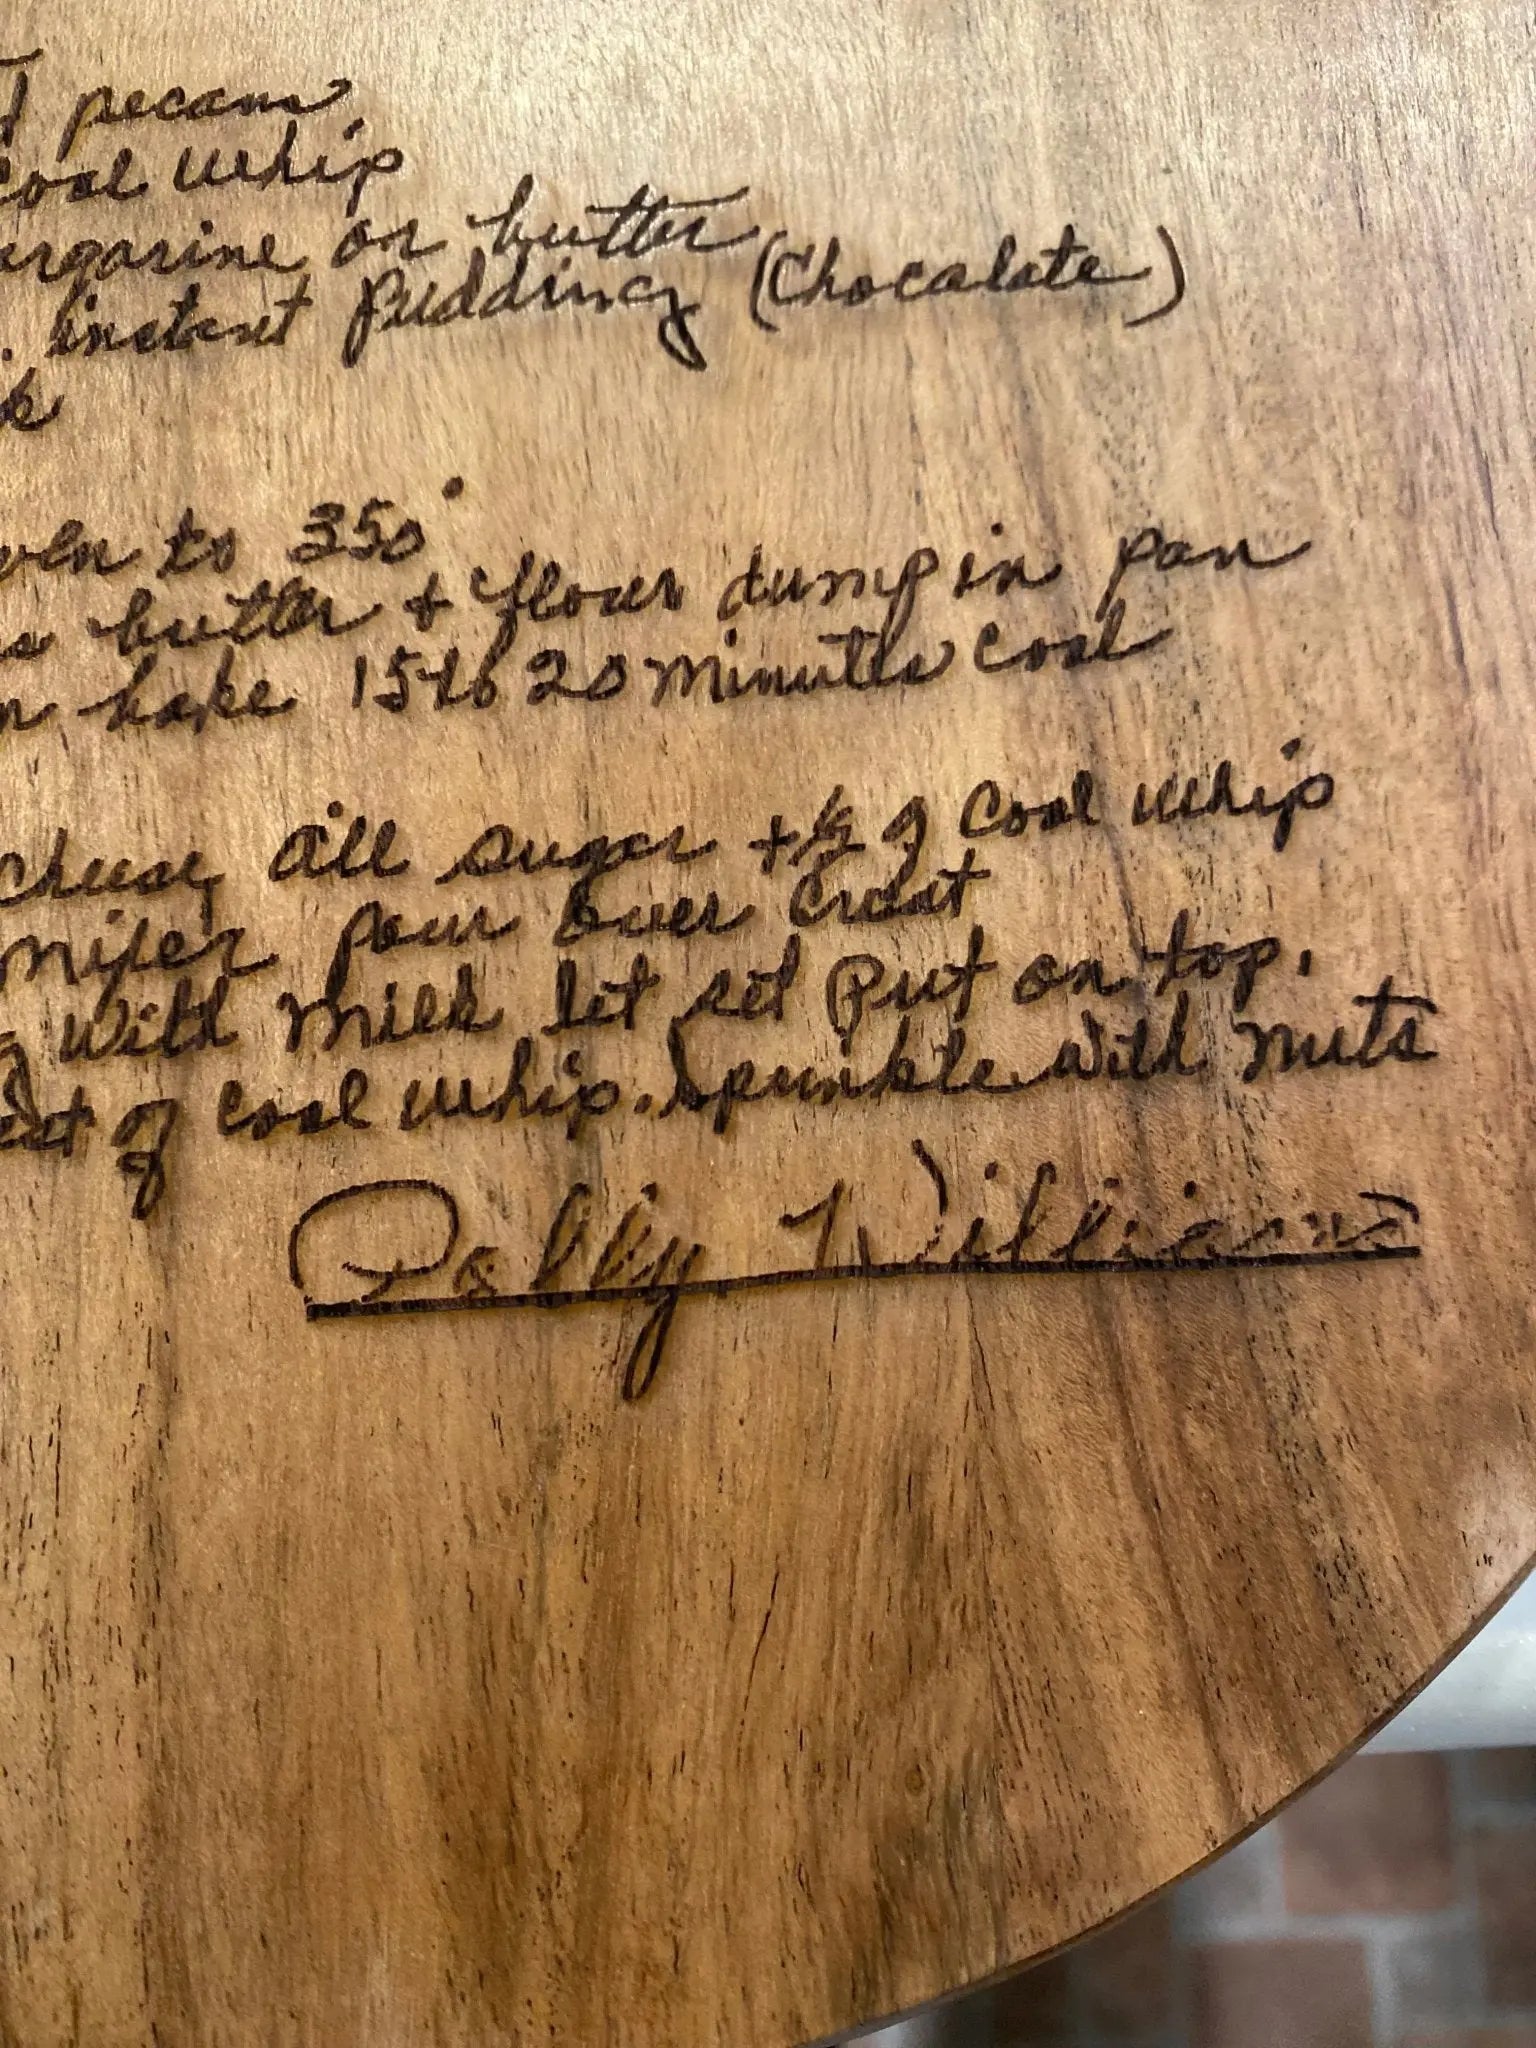 pecans
Cool whip
or butter
instant pudding (Chocolate)
to 350°
butter + flour dump in pan
bake 15 to 20 minutes cool
all sugar + ½ of Cool whip
pour over crust
with milk let set Put on top.
of cool whip. Sprinkle with nuts
Polly Williams